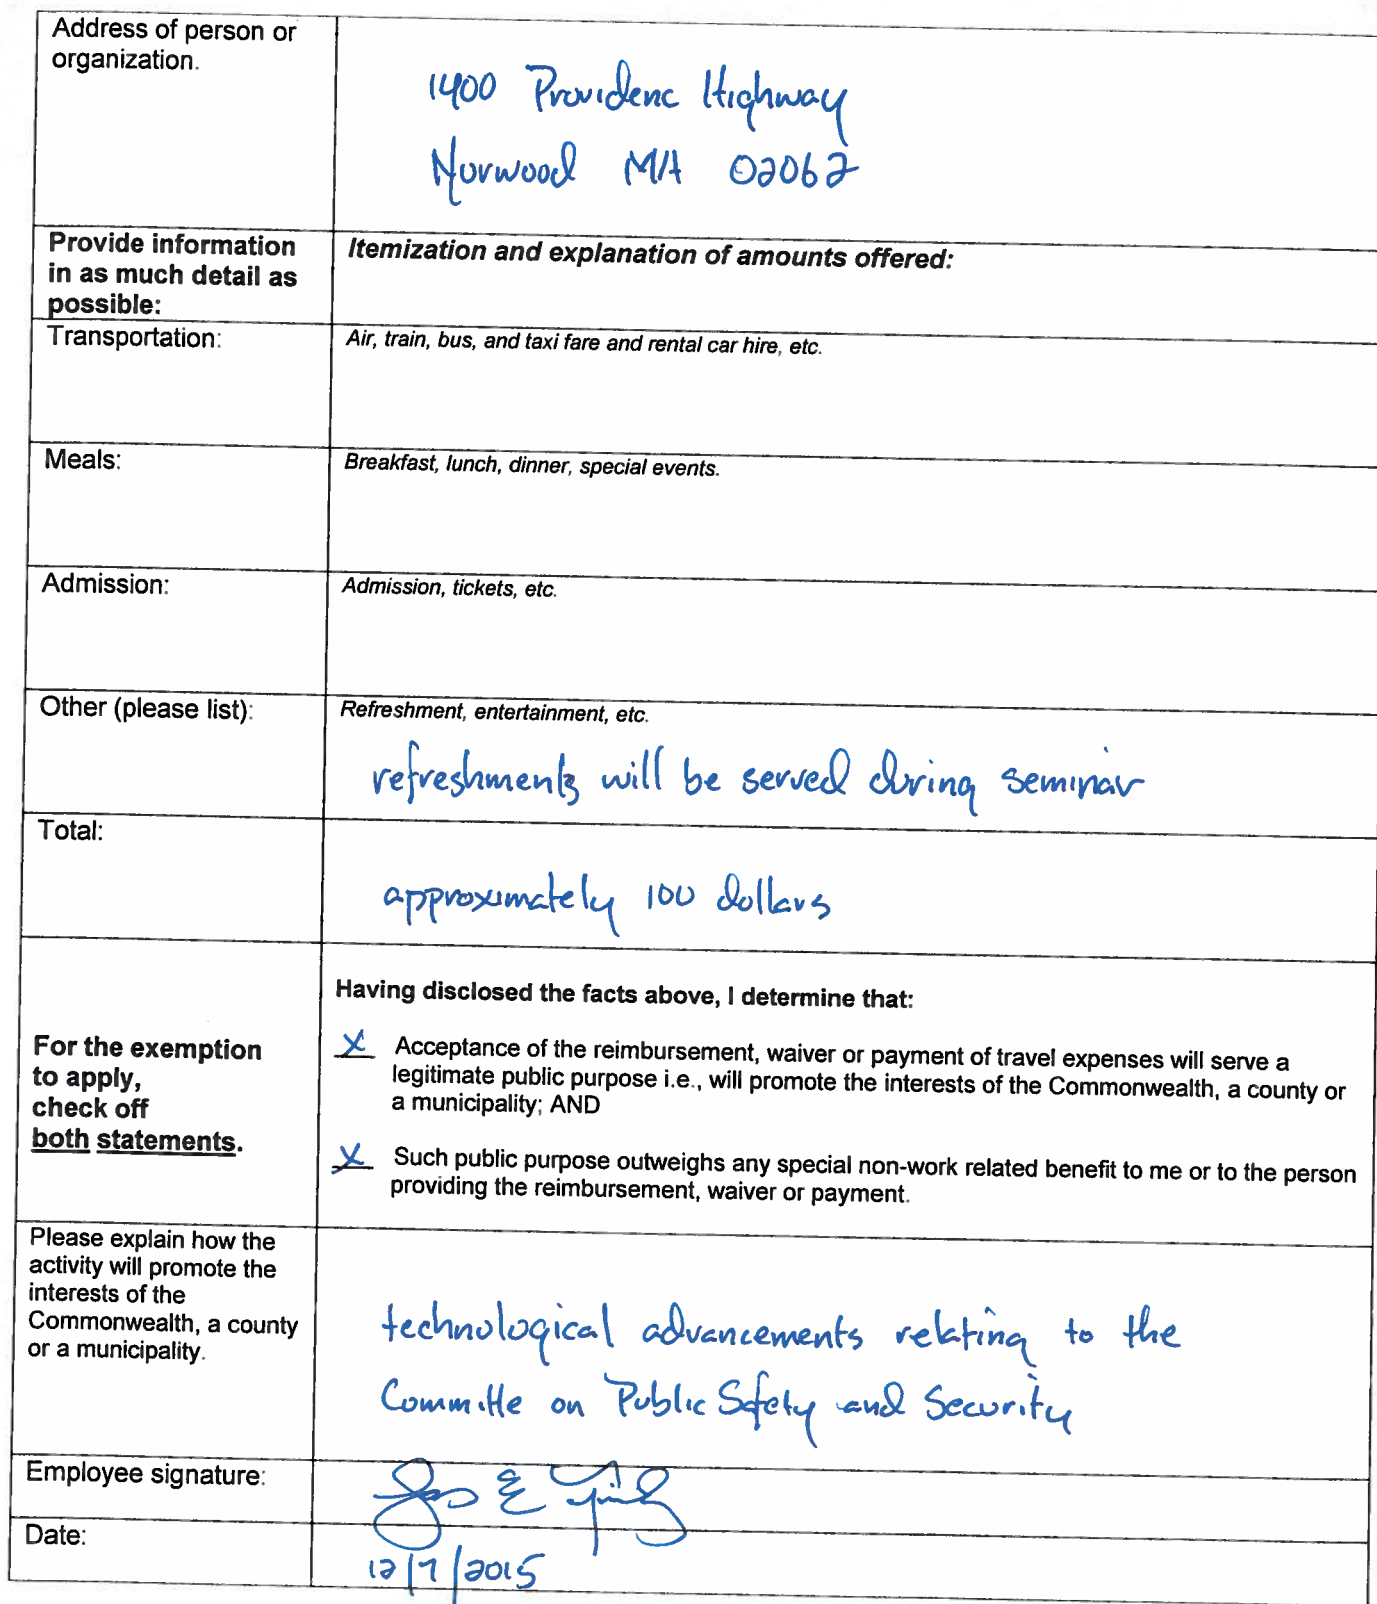 Address of person or
organization.
1400 Providenc Highway
Norwood MA 02062
Provide information
in as much detail as
possible:
Itemization and explanation of amounts offered:
Transportation:
Air, train, bus, and taxi fare and rental car hire, etc.
Meals:
Breakfast, lunch, dinner, special events.
Admission:
Admission, tickets, etc.
Other (please list):
Refreshment, entertainment, etc.
refreshments will be served during seminar
Total:
approximately 100 dollars
For the exemption
to apply,
check off
both statements.
Having disclosed the facts above, I determine that:
X Acceptance of the reimbursement, waiver or payment of travel expenses will serve a
legitimate public purpose i.e., will promote the interests of the Commonwealth, a county or
a municipality; AND
X Such public purpose outweighs any special non-work related benefit to me or to the person
providing the reimbursement, waiver or payment.
Please explain how the
activity will promote the
interests of the
Commonwealth, a county
or a municipality.
technological advancements relating to the
Committe on Public Safety and Security
Employee signature:
Date:
12/7/2015